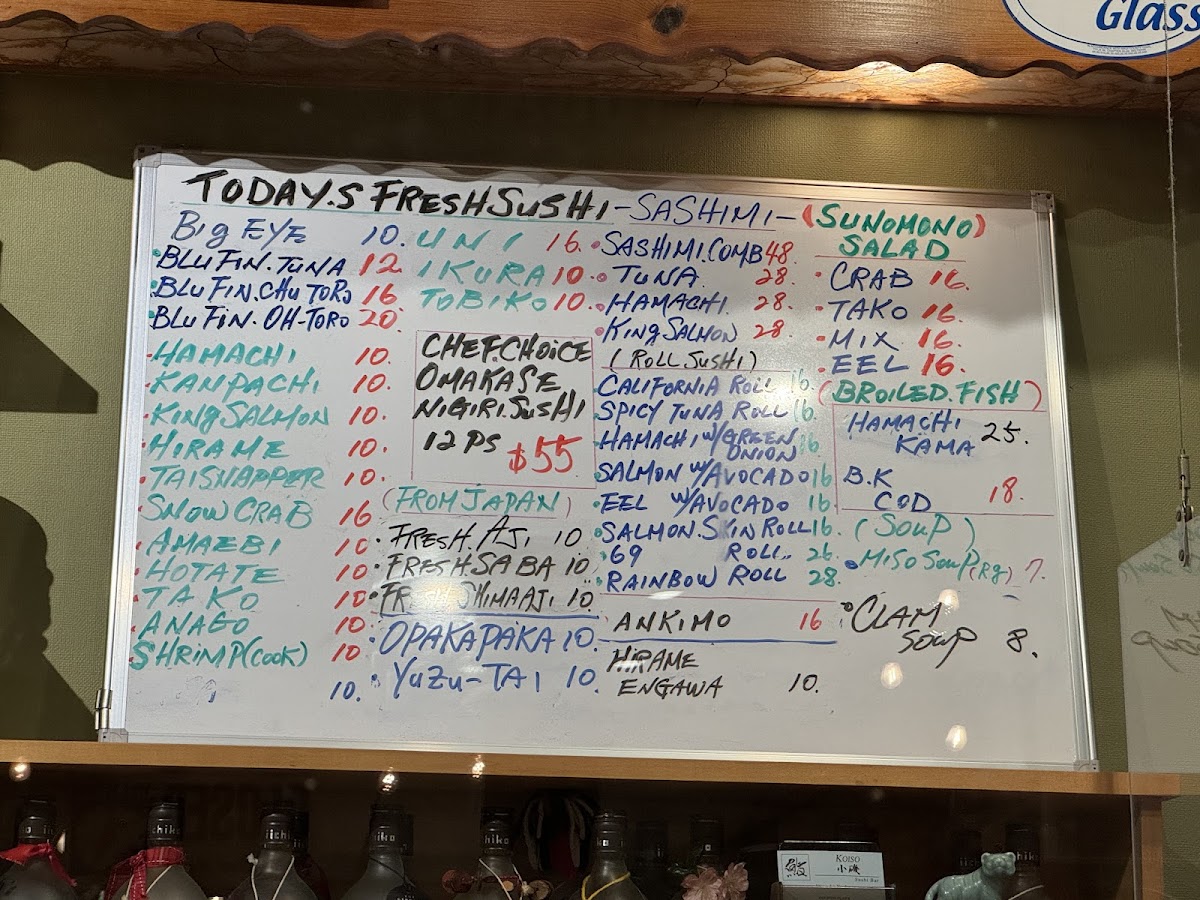 Glass
TODAY.S FRESH SUSHI -SASHIMI- (SUNOMONO)
SALAD
Big EYE 10.
BLUFIN.TUNA 12.
BLUFIN.CHUTORO 16
BLUFIN.OH-TORO 20.
HAMACHI 10.
KANPACHI 10.
KINGSALMON 10.
HIRAME 10.
TAISNAPPER 10.
SNOW CRAB 16
AMAEBI 10
HOTATE 10
TAKO 10
ANAGO 10
SHRIMP(COOK) 10
10.
UNI 16.
IKURA 10.
TOBIKO 10.
CHEF.CHOICE
OMAKASE
NIGIRI.SUSHI
12 PS $55
(FROM JAPAN)
FRESH.AJI 10
FRESH.SABA 10
FRESH SHIMAAJI 10.
OPAKAPAKA 10.
YUZU-TAI 10.
SASHIMI.COMB 48.
TUNA 28.
HAMACHI. 28.
KING SALMON 28.
(ROLL.SUSHI)
CALIFORNIA ROLL 16.
SPICY TUNA ROLL 16.
HAMACHI W/GREEN 16
ONION
SALMON W/AVOCADO 16
EEL W/AVOCADO 16.
SALMON.SKIN ROLL 16.
69 ROLL. 26.
RAINBOW ROLL 28.
ANKIMO 16
HIRAME
ENGAWA 10.
CRAB 16.
TAKO 16.
MIX 16.
EEL 16.
(BROILED.FISH)
HAMACHI
KAMA 25.
B.K
COD 18.
(SOUP)
MISO SOUP(Rg) 7.
CLAM
SOUP 8.
iichiko
KOISO
小磯
Sushi Bar